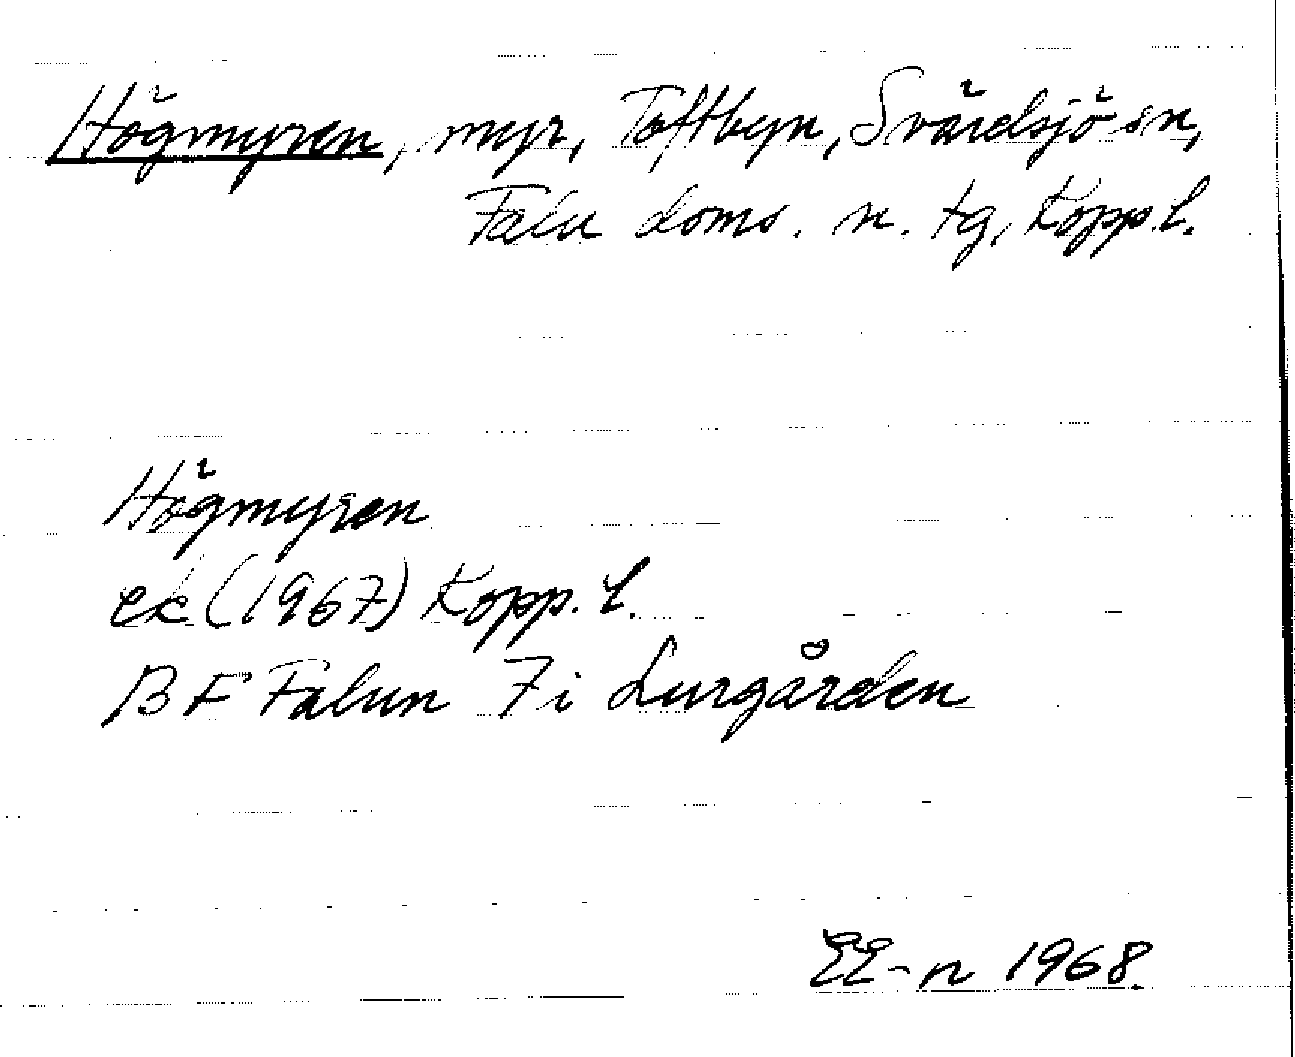 Högmyren, myr, Toftbyn, Svärdsjö sn,
Falu doms. n. tg, Kopp.l.
Högmyren
ek (1967) Kopp. l.
BF Falun 7i Lurgården
EE-n 1968.